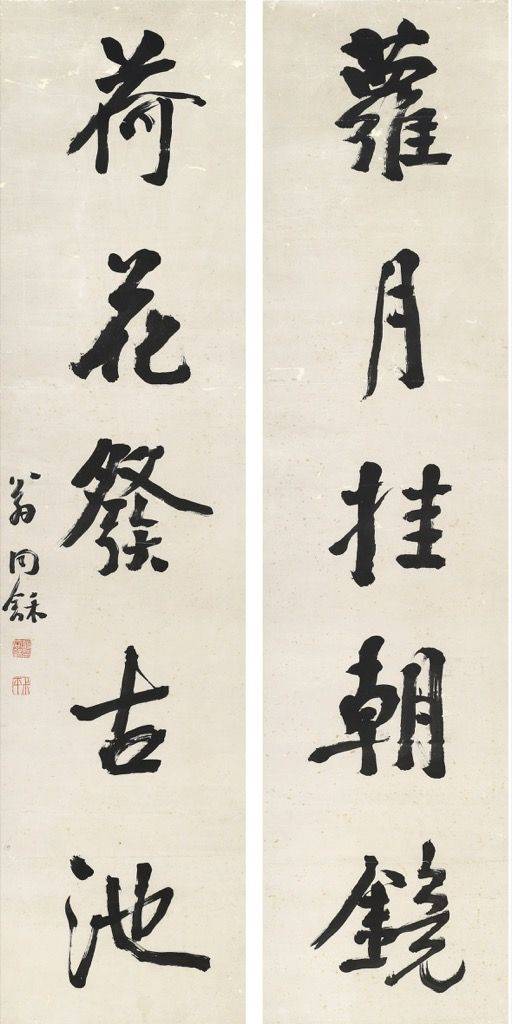 蘿月挂朝鏡
荷花發古池
翁同龢